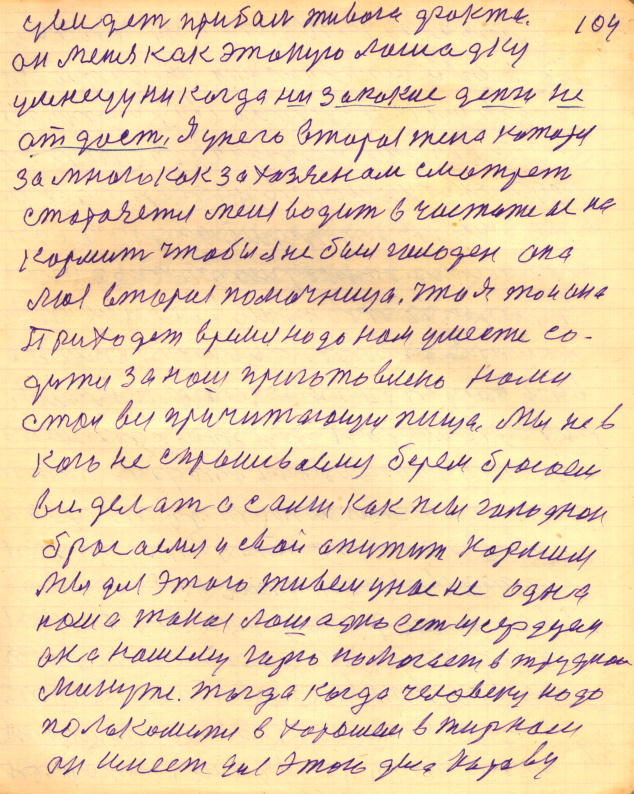 увидет прибал живога факта. 104
он меня как этакую лошадку
уменецу никогда ни за какие денги не
атдаст. Я унего втарая жена катора
за многа как за хазяенам смотрет
стараетя меня водит в чистате и на
кормит чтобы я не был голоден она
моя втарая помочница. что я то и она
Приходет время надо нам уместе са-
дится за наш приготовлено нами
стол ви причитающую пища, Мы не в
кого не спрашиваемся берем бросаем
ви делат а сами как псы голоднои
бросаемся и свой апитит кормим
Мы для этого живем у нас не одна
наша такая лошадка есть и сердцам
она нашему гарю помогает в трудной
минуте. тогда когда человеку надо
полакомитя в харошем в жирном
он имеет для этого дела Карову